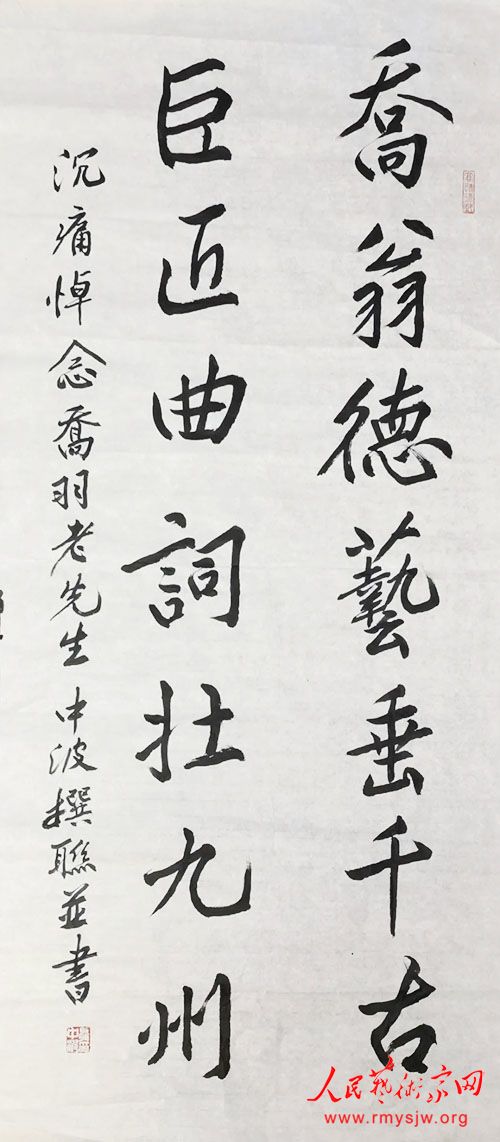 喬翁德藝垂千古
巨匠曲詞壯九州
沉痛悼念喬羽老先生 中波撰聯並書
人民藝術家网
www.rmysjw.org